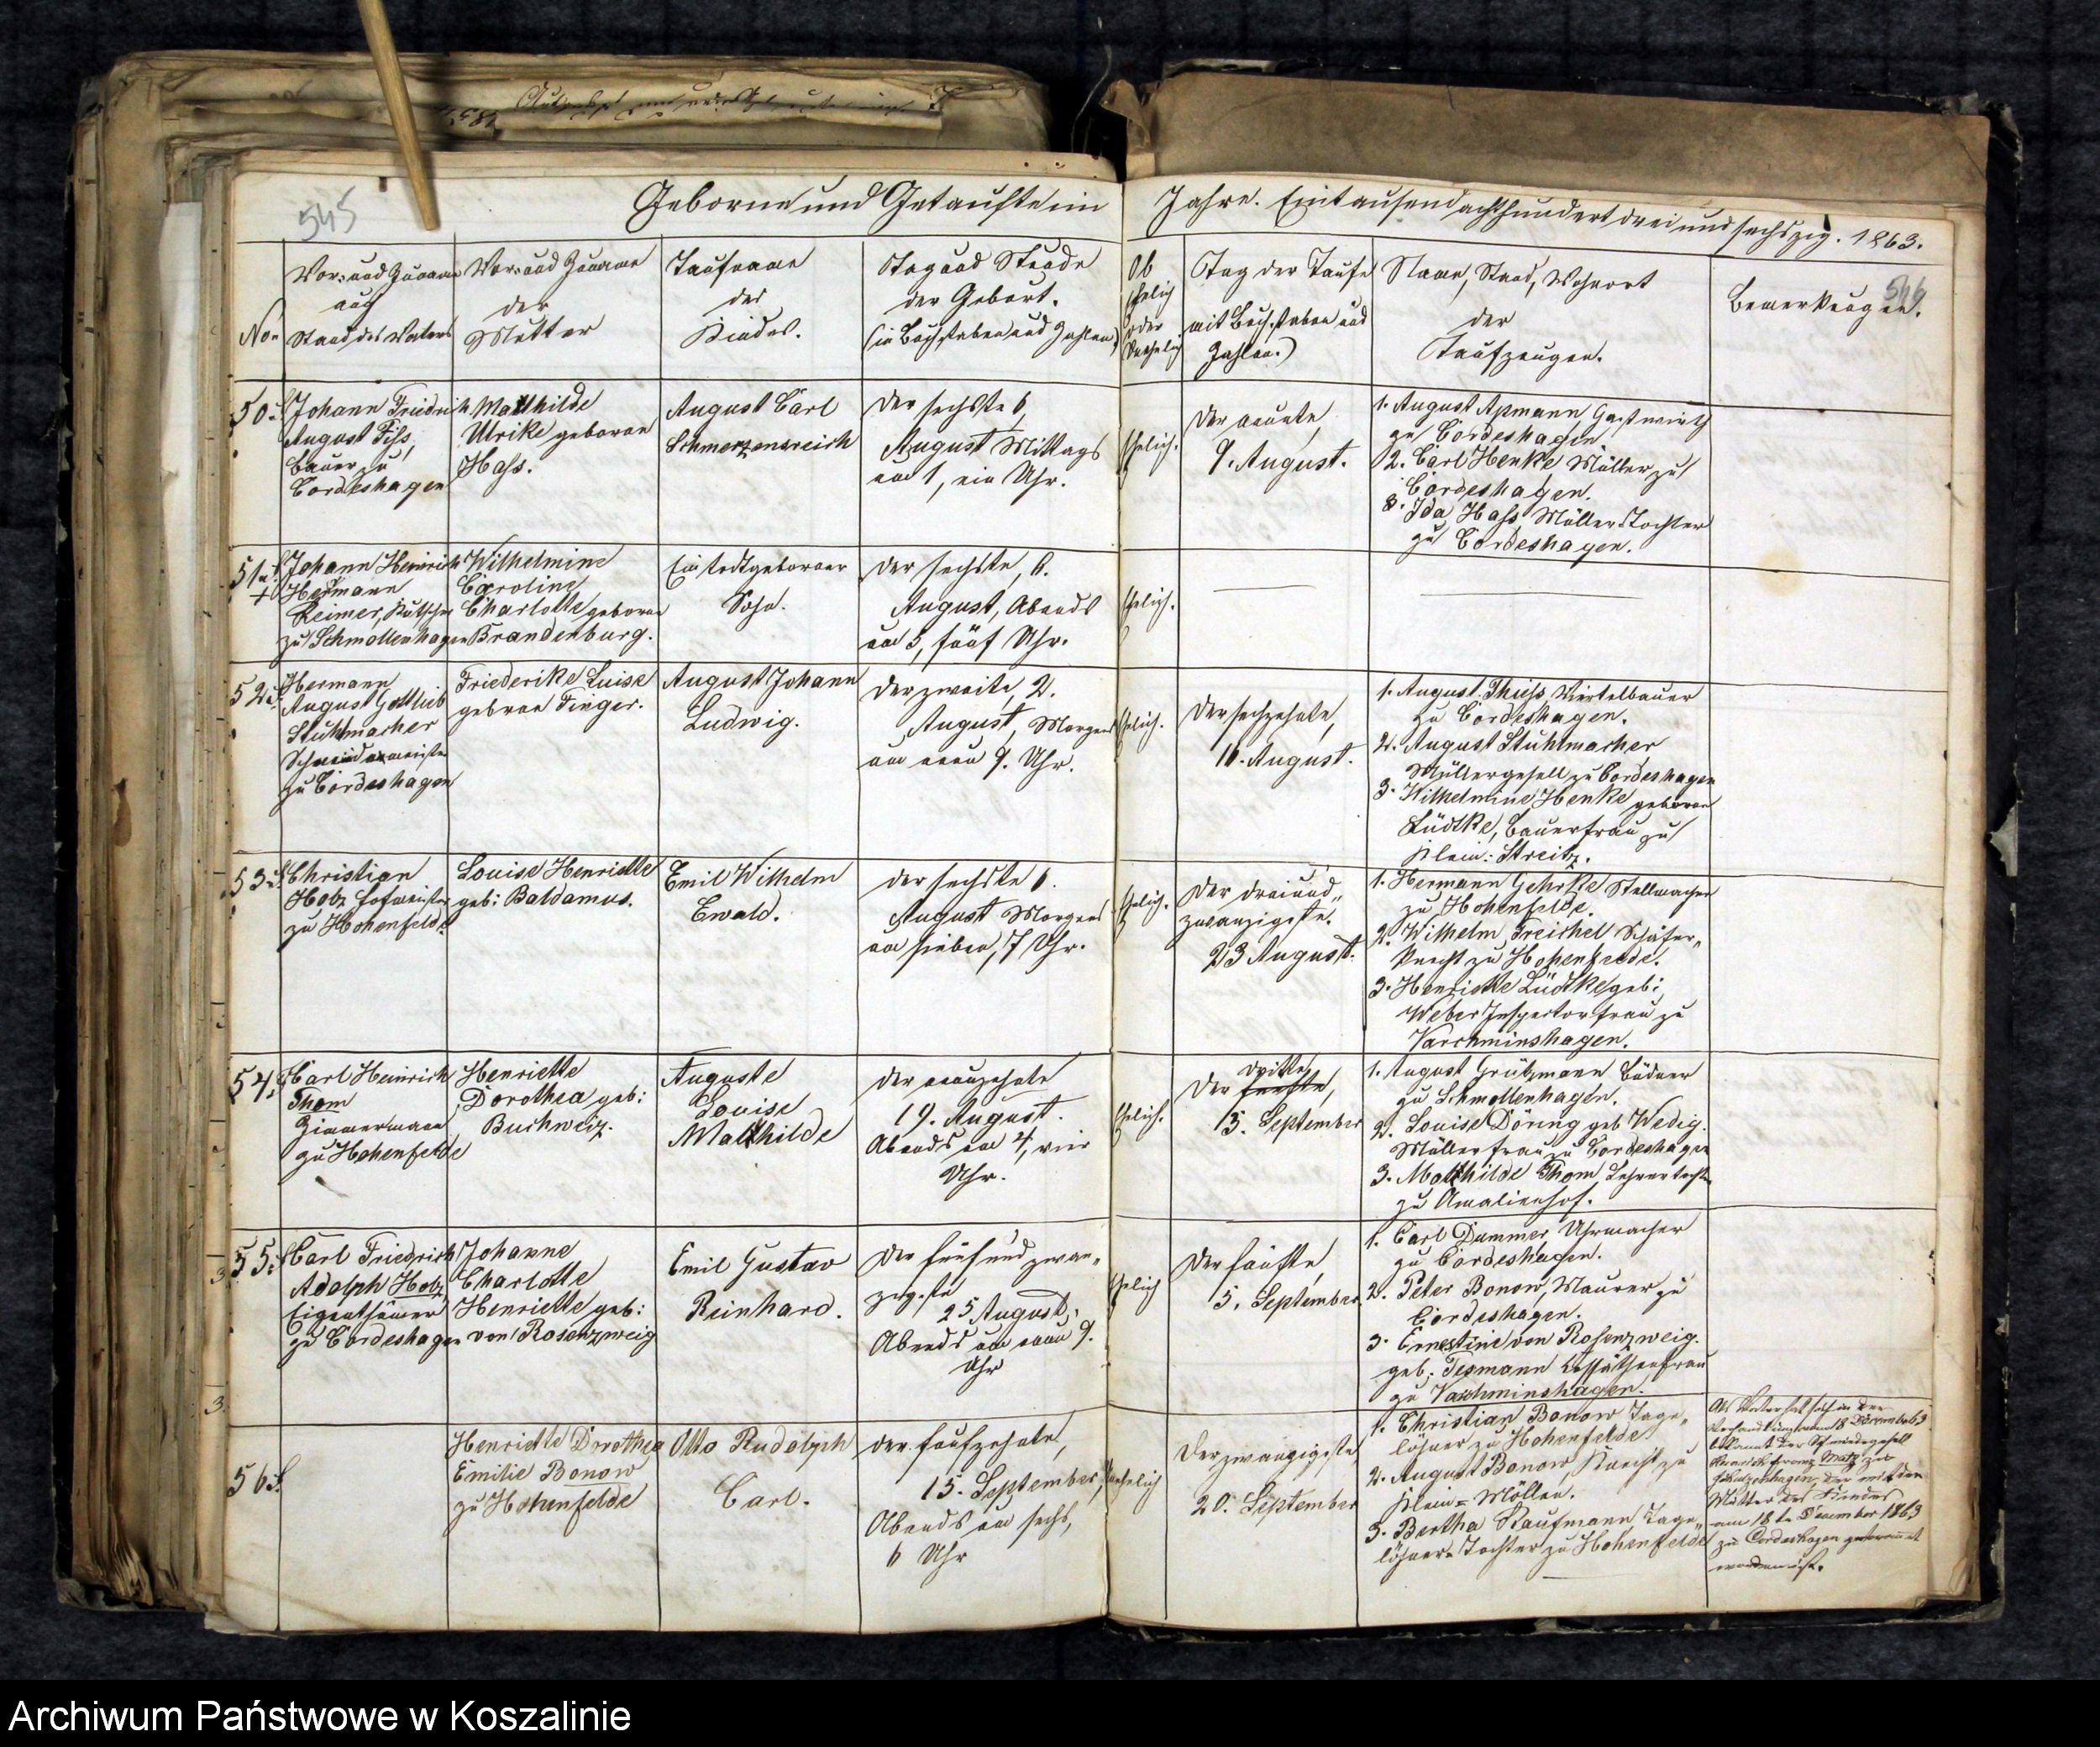 545
Geborne und Getaufte im
Jahre. Eintausend achthundert drei und sechszig. 1863.
546
No.
Vor- und Zuname
auch
Stand des Vaters
Vor- und Zuname
der
Mutter
Taufname
des
Kindes.
Tag und Stunde
der Geburt.
(in Buchstaben und Zahlen)
Ob
ehelich
oder
unehelich
Tag der Taufe
mit Buchstaben und
Zahlen.)
Name, Stand, Wohnort
der
Taufzeugen.
Bemerkungen.
50.
Johann Friedrich
August Fiss,
Bauer zu
Cordeshagen
Mathilde
Ulrike geborne
Hass.
August Carl
Schmerzensreich
Der sechste 6,
August Mittags
um 1, ein Uhr.
Ehelich.
Der neunte,
9. August.
1. August Apmann, Gastwirth
zu Cordeshagen.
2. Carl Henke Müller zu
Cordeshagen.
3. Ida Hass, Müller Tochter
zu Cordeshagen.
51.
+
Johann Heinrich
Hermann
Reimer, Kutscher
zu Schmollenhagen
Wilhelmine
Caroline
Charlotte geborne
Brandenburg.
Ein todtgeborner
Sohn.
Der sechste, 6.
August, Abends
um 5, fünf Uhr.
Ehelich.
52.
Hermann
August Gottlieb
Stuhlmacher
Schneidermeister
zu Cordeshagen
Friederike Luise
geborne Finger.
August Johann
Ludwig.
Der zweite, 2.
August, Morgens
um neun 9. Uhr.
Ehelich.
Der sechzehnte,
16. August.
1. August Thiess Viertelbauer
zu Cordeshagen.
2. August Stuhlmacher
Müllergesell zu Cordeshagen
3. Wilhelmine Henke geborne
Lüdtke, Bauerfrau zu
Klein: Streitz.
53.
Christian
Hobz Hofmeister
zu Hohenfelde
Louise Henriette
geb: Baldamus.
Emil Wilhelm
Ewald.
Der sechste 6.
August Morgens
um sieben, 7 Uhr.
Ehelich.
Der dreiund„
zwanzigste.
23 August.
1. Hermann Gehrke Stellmacher
zu Hohenfelde.
2. Wilhelm Treichel Schäfer„
knecht zu Hohenfelde.
3. Henriette Lüdtke geb:
Weber Inspectorfrau zu
Varchminshagen.
54.
Carl Heinrich
Thom
Zimmermann
zu Hohenfelde
Henriette
Dorothea geb:
Buchweiz.
Auguste
Louise
Mathilde
Der neunzehnte
19. August.
Abends um 4, vier
Uhr.
Ehelich.
dritte,
Der fünfte,
3. September
1. August Grützmann Büdner
zu Schmollenhagen.
2. Louise Döring geb Wedig.
Müllerfrau zu Cordeshagen
3. Mathilde Thom, Lehrertochter
zu Amalienhof.
55.
Carl Friedrich
Adolph Hobz
Eigenthümer
zu Cordeshagen
Johanne
Charlotte
Henriette geb:
von Rosenzweig
Emil Gustav
Reinhard.
Der fünfundzwan„
zigste
25 August,
Abends um neun 9.
Uhr
Ehelich
Der fünfte,
5. September.
1. Carl Dummer, Uhrmacher
zu Cordeshagen.
2. Peter Bonow, Maurer zu
Cordeshagen.
3. Ernestine von Rosenzweig.
geb. Tesmann Cossäthenfrau
zu Varchminshagen.
56.
Henriette Dorothea
Emilie Bonow
zu Hohenfelde
Otto Rudolph
Carl.
Der fünfzehnte,
15. September,
Abends um sechs,
6 Uhr
Unehelich
Der zwanzigste
20. September
1. Christian Bonow Tage„
löhner zu Hohenfelde
2. August Bonow, Knecht zu
Klein-Möllen.
3. Bertha Kaufmann Tage„
löhner Tochter zu Hohenfelde
Als Vater hat sich in der
Verhandlung vom 18 December 63
bekannt der Schmiedegesell
Heinrich Franz Matz zu
Schulzenhagen, der mit der
Mutter des Kindes
am 18ten December 1863
zu Cordeshagen getraut
worden ist.
Archiwum Państwowe w Koszalinie